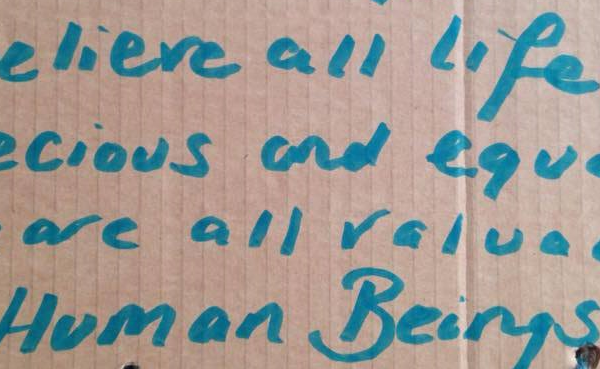 elieve all life
ecious and equa
are all valua
Human Beings